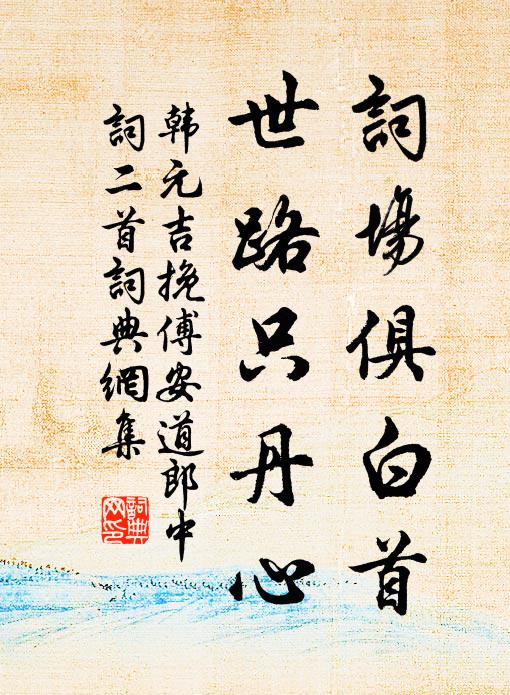 詞場俱白首
世路只丹心
韩元吉挽傅安道郎中
詞二首詞典網集
詞典
网印